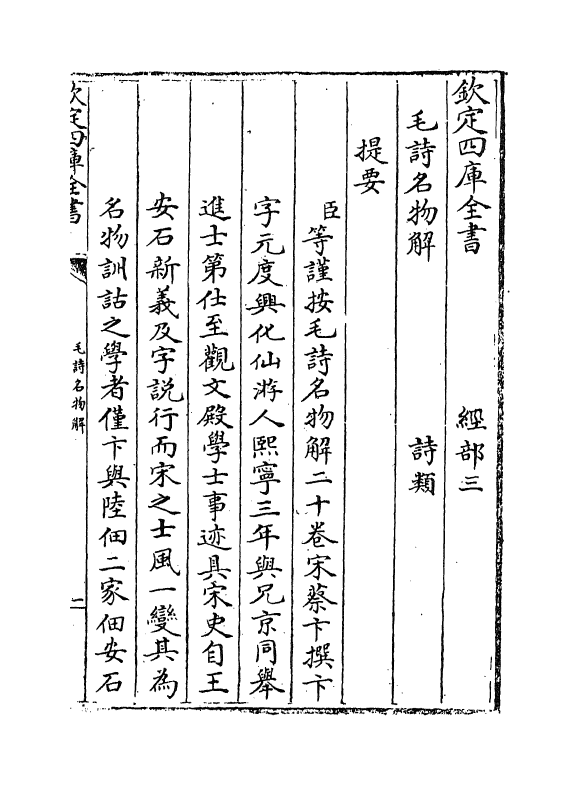 欽定四庫全書　　　經部三
毛詩名物解　　　詩類
提要
臣等謹按毛詩名物解二十卷宋蔡卞撰卞
字元度興化仙游人熙寧三年與兄京同舉
進士第仕至觀文殿學士事迹具宋史自王
安石新義及字說行而宋之士風一變其為
名物訓詁之學者僅卞與陸佃二家佃安石
欽定四庫全書
毛詩名物解
二